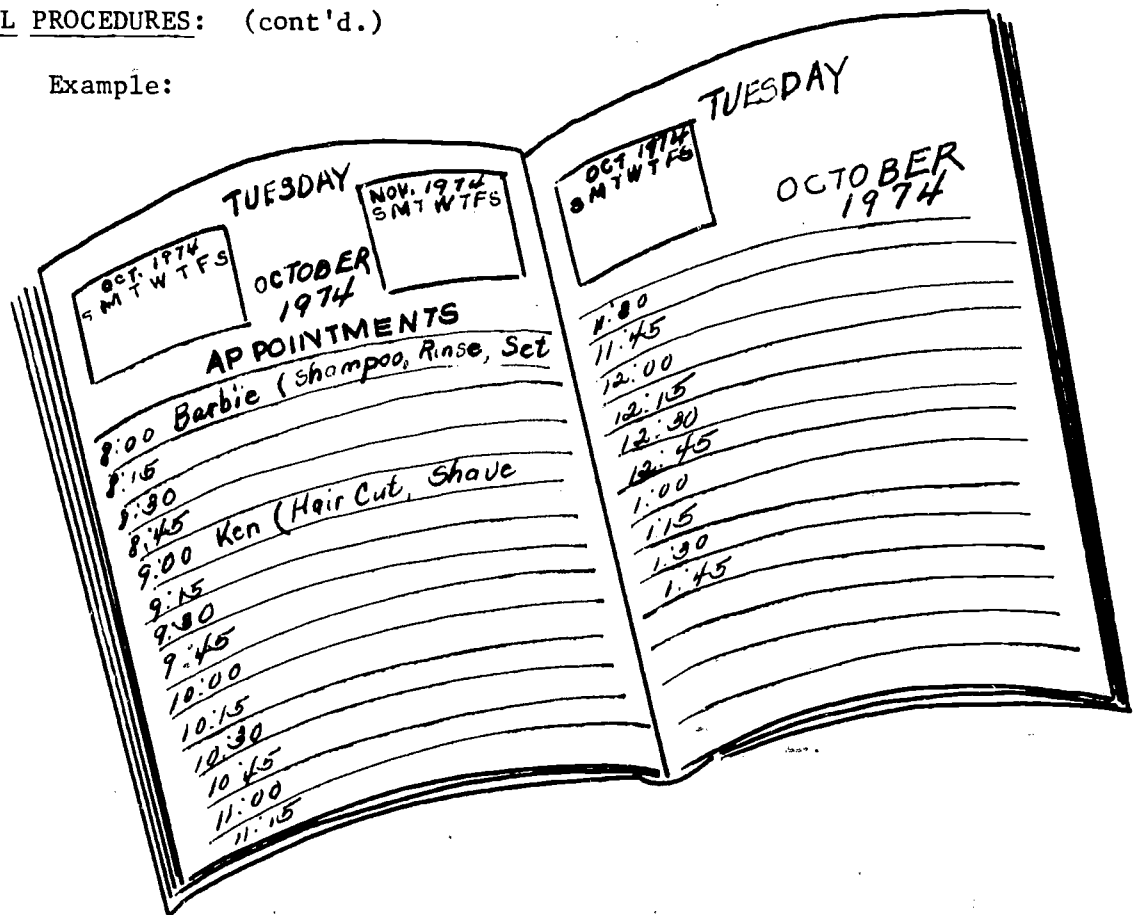 L PROCEDURES: (cont'd.)
Example:
TUESDAY
OCT. 1974
S M T W T F S
OCTOBER
1974
NOV. 1974
S M T W T F S
APPOINTMENTS
8:00 Barbie (Shampoo, Rinse, Set
8:15
8:30
8:45
9:00 Ken (Hair Cut, Shave
9:15
9:30
9:45
10:00
10:15
10:30
10:45
11:00
11:15
TUESDAY
OCT. 1974
S M T W T F S
OCTOBER
1974
11:30
11:45
12:00
12:15
12:30
12:45
1:00
1:15
1:30
1:45